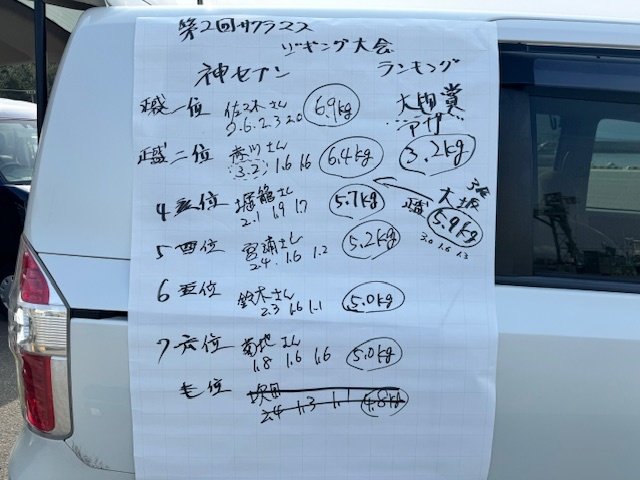 第2回サクラマス
ジギング大会
神セブン
ランキング
一位 佐々木さん 6.9kg
2.6.2.3 2.0
二位 さん 6.4kg
3.2 1.6 1.6
大物賞
3.2kg
4 位 さん 5.7kg
2.1 1.9 1.7
5.9kg
3.0 1.6 1.3
5 四位 宮浦さん 5.2kg
2.4 1.6 1.2
6 五位 鈴木さん 5.0kg
2.3 1.6 1.1
7 六位 菊地さん 5.0kg
1.8 1.6 1.6
七位
2.4 1.3 1.1 4.8kg